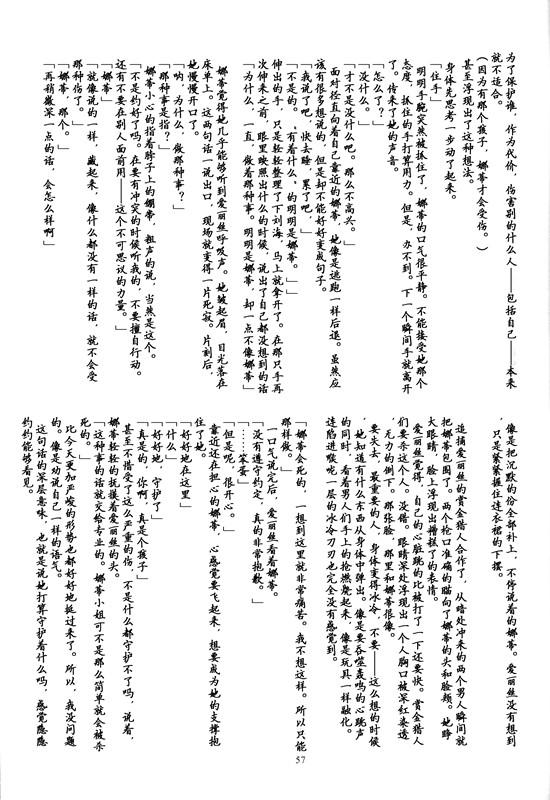 为了保护谁，作为代价，伤害别的什么人——包括自己——本来
就不适合。
（因为有那个孩子，娜蒂才会受伤。）
甚至浮现出了这种想法。
身体先思考一步动了起来。
「住手」
明明手腕突然被抓住了，娜蒂的口气很平静。不能接受她那个
态度，抓住的手打算用力。但是，办不到。下一个瞬间手就离开
了。传来了她的声音。
「怎么了？」
「没什么。」
「才不是没什么吧。那么不高兴。」
面对径直向着自己靠近的娜蒂，她像是逃跑一样后退。虽然应
该有很多想说的，但是却不能好好变成句子。
「我说了吧，快去睡，累了吧。」
「不是的。」有着什么、的明明是娜蒂。」
伸出的手，只是轻轻整理了下刘海，马上就拿开了。在那只手再
次伸来之前，眼里映照出什么的时候，说出了自己都没想到的话
「为什么，一直，做着那种事。明明是娜蒂，却一点不像娜蒂」
娜蒂觉得她几乎能够听到爱丽丝呼吸声。她皱起眉，目光落在
床单上。这两句话一说出口，现场就变得一片死寂。片刻后，
她慢慢开口了。
「呐，为什么，做那种事？」
「那种事是指？」
娜蒂小心的指着脖子上的绷带，粗声的说，当然是这个。
「不是约好了吗。在要有冲突的时候听我的，不要擅自行动。
还有不要在别人面前用——这个不可思议的力量。」
「娜蒂」
「就像说的一样，藏起来，像什么都没有一样的话，就不会受
那种伤了。」
「娜蒂，那个。」
「再稍微深一点的话，会怎么样啊」
像是把沉默的份全部补上，不停说着的娜蒂。爱丽丝没有想到
，只是紧紧握住连衣裙的下摆。
追捕爱丽丝的赏金猎人合作了，从暗处冲来的两个男人瞬间就
把娜蒂包围了。两个枪口准确的瞄向了娜蒂的头和脸颊。她睁
大眼睛，脸上浮现出糟糕了的表情。
爱丽丝觉得，自己的心脏跳的比被打了一下还要快。赏金猎人
们要杀这个人，没错。眼睛深处浮现出一个人胸口被深红染透
，无力的倒下。那张脸，那里和娜蒂很像。
要失去，最重要的人，身体变得冰冷，不要——这么想的时候
，她知道有什么东西从身体中弹出。像是要吞噬轰鸣的心跳声
的同时，看着男人们手上的枪燃烧起来，像是玩具一样融化。
连陷进喉咙一层的冰冷刀刃也完全没有感觉到。
「娜蒂会死的，一想到这里就非常痛苦。我不想这样。所以只能
那样做。」
一口气说完后，爱丽丝看着娜蒂。
「没有遵守约定，真的非常抱歉。」
「……笨蛋」
「但是呢，很开心。」
靠近还在担心的娜蒂，心感觉要飞起来，想要成为她的支撑抱
住了她。
「好好地在这里」
「什么」
「好好地，守护了」
「真是的，你啊，真是个孩子」
甚至不惜受了这么严重的伤，不是什么都守护不了吗，说着，
娜蒂轻轻的抚摸着爱丽丝的头。
「这种事的话就交给专业的。娜蒂小姐可不是那么简单就会被杀
死的。」
比今天更加严峻的形势也都好好地挺过来了。所以，我没问题
的，像是劝说自己一样的语气。
这句话的深层意味，也就是说她打算守护着什么吗，感觉隐隐
约约能够看见。
57